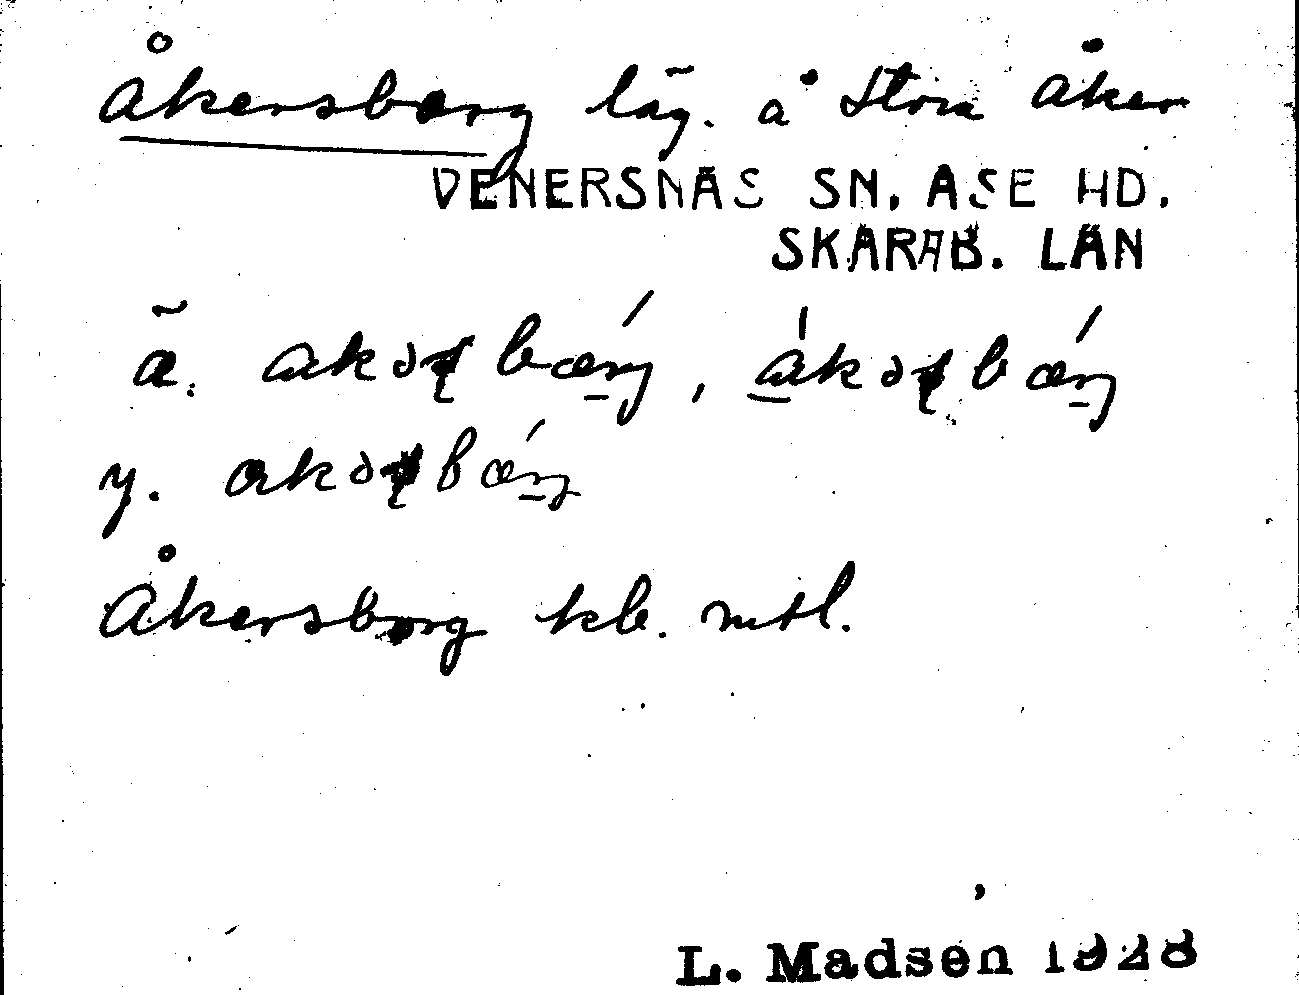 Åkersborg läg. å Stora Åker
VENERSNÄS SN. ÅSE HD.
SKARAB. LÄN
ä. akəʂbærj, akəʂbærj
y. akəʂbærj
Åkersborg kb. mtl.
L. Madsen 1928